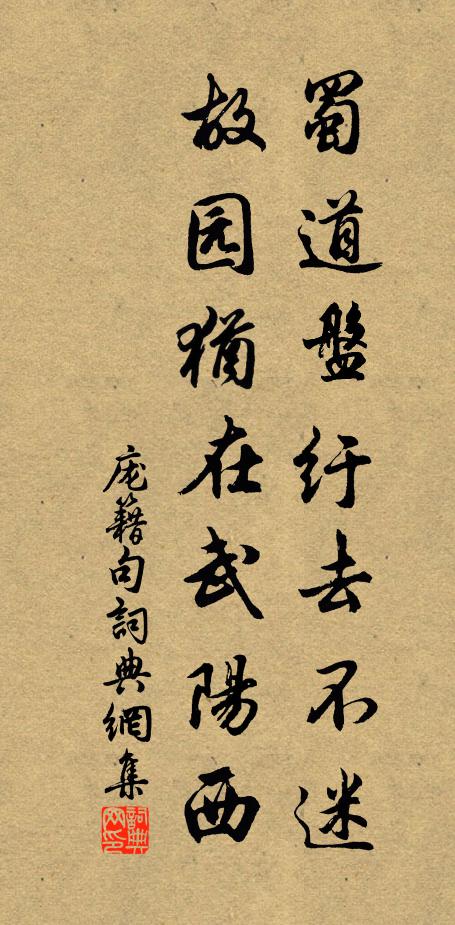 蜀道盤紆去不迷
故园猶在武陽西
庞籍句詞典網集
詞典网印